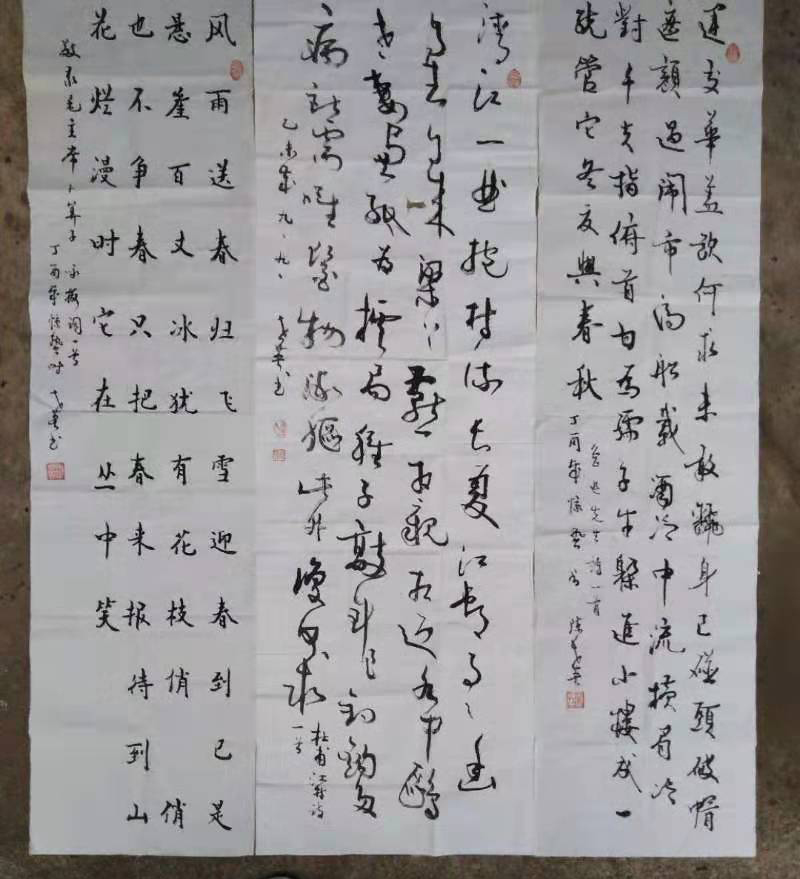 運交華盖欲何求未敢翻身已碰頭破帽
遮顔過闹市漏船載酒泛中流横眉冷
對千夫指俯首甘為孺子牛躲進小樓成一
統管它冬夏與春秋
魯迅先生詩一首
丁酉年惊蛰
清江一曲抱村流长夏江村事〻幽
自去自来梁上燕相親相近水中鷗
老妻画纸为棋局稚子敲針作釣鉤多
病所需唯藥物微軀此外復何求
杜甫江村诗
一首
乙未年九、九、
风雨送春归飞雪迎春到已是
悬崖百丈冰犹有花枝俏俏
也不争春只把春来报待到山
花烂漫时它在丛中笑
敬录毛主席卜算子 咏梅词一首
丁酉年惊蛰时